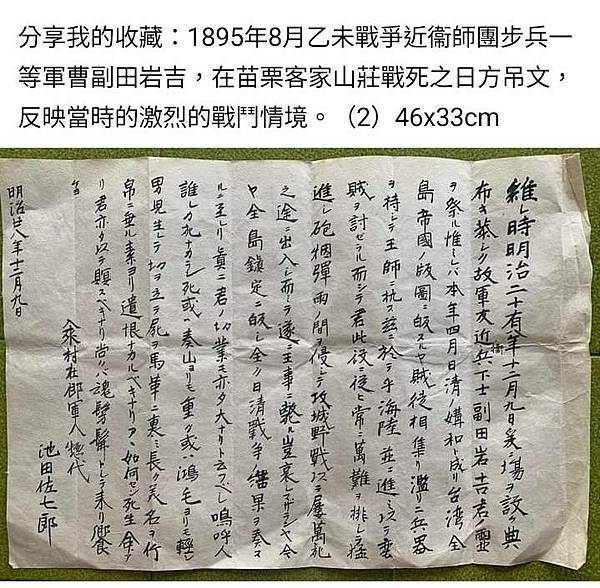 分享我的收藏：1895年8月乙未戰爭近衞師團步兵一
等軍曹副田岩吉，在苗栗客家山莊戰死之日方吊文，
反映當時的激烈的戰鬥情境。（2）46x33cm
維レ時明治二十有八年十二月九日爰ニ場ヲ設ケ典
布キ恭シク故軍友近衞兵下士副田岩吉君ノ靈
ヲ祭ル惟ミレバ本年四月日清ノ媾和ト成リ台湾全
島帝國ノ版圖ニ皈スルヤ賊徒相集リ濫リニ兵器
ヲ持シテ王師ニ抗ス茲ニ於テ乎海陸並ニ進ミ以テ
賊ヲ討ゼラル而シテ君此役ニ従ヒ常ニ萬難ヲ排シテ猛
進シ砲烟彈雨ノ間ヲ侵シテ攻城野戰以テ屢萬死
之途ニ出入シ而シテ遂ニ王事ニ斃ル豈哀シマザランヤ今
ヤ全島鎭定ニ皈シ全ク日清戰争ノ結果ヲ奏ス
ルニ至レリ眞ニ君ノ功業モ亦タ大ナリト云フベシ嗚呼人
誰レカ死ナカラン死或ハ泰山ヨリモ重ク或ハ鴻毛ヨリモ輕シ
男児生レテ功ヲ立テ死ヲ馬革ニ裹ミ長ク美名ヲ竹
帛ニ垂ル素ヨリ遺恨ナカルベキナリアヽ如何セン死生命ア
リ君亦タ以テ瞑スベキナリ尚クハ魂髣髴トシテ来リ饗
ケヨ
村在郷軍人惣代
池田佐七郎
明治廿八年十二月九日